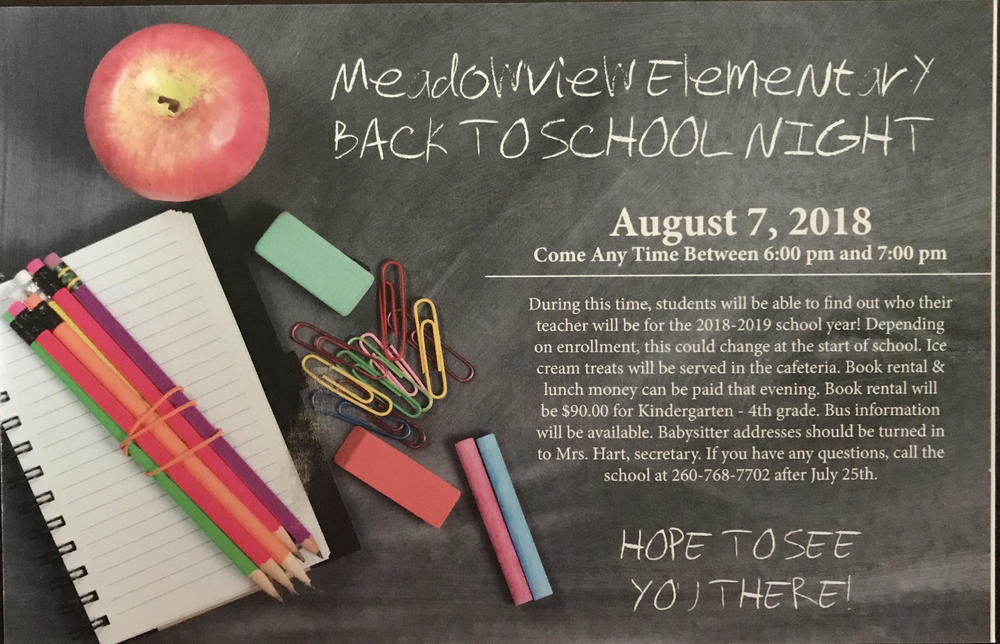 Meadowview Elementary
BACK TO SCHOOL NIGHT
August 7, 2018
Come Any Time Between 6:00 pm and 7:00 pm
During this time, students will be able to find out who their
teacher will be for the 2018-2019 school year! Depending
on enrollment, this could change at the start of school. Ice
cream treats will be served in the cafeteria. Book rental &
lunch money can be paid that evening. Book rental will
be $90.00 for Kindergarten - 4th grade. Bus information
will be available. Babysitter addresses should be turned in
to Mrs. Hart, secretary. If you have any questions, call the
school at 260-768-7702 after July 25th.
HOPE TO SEE
YOU THERE!